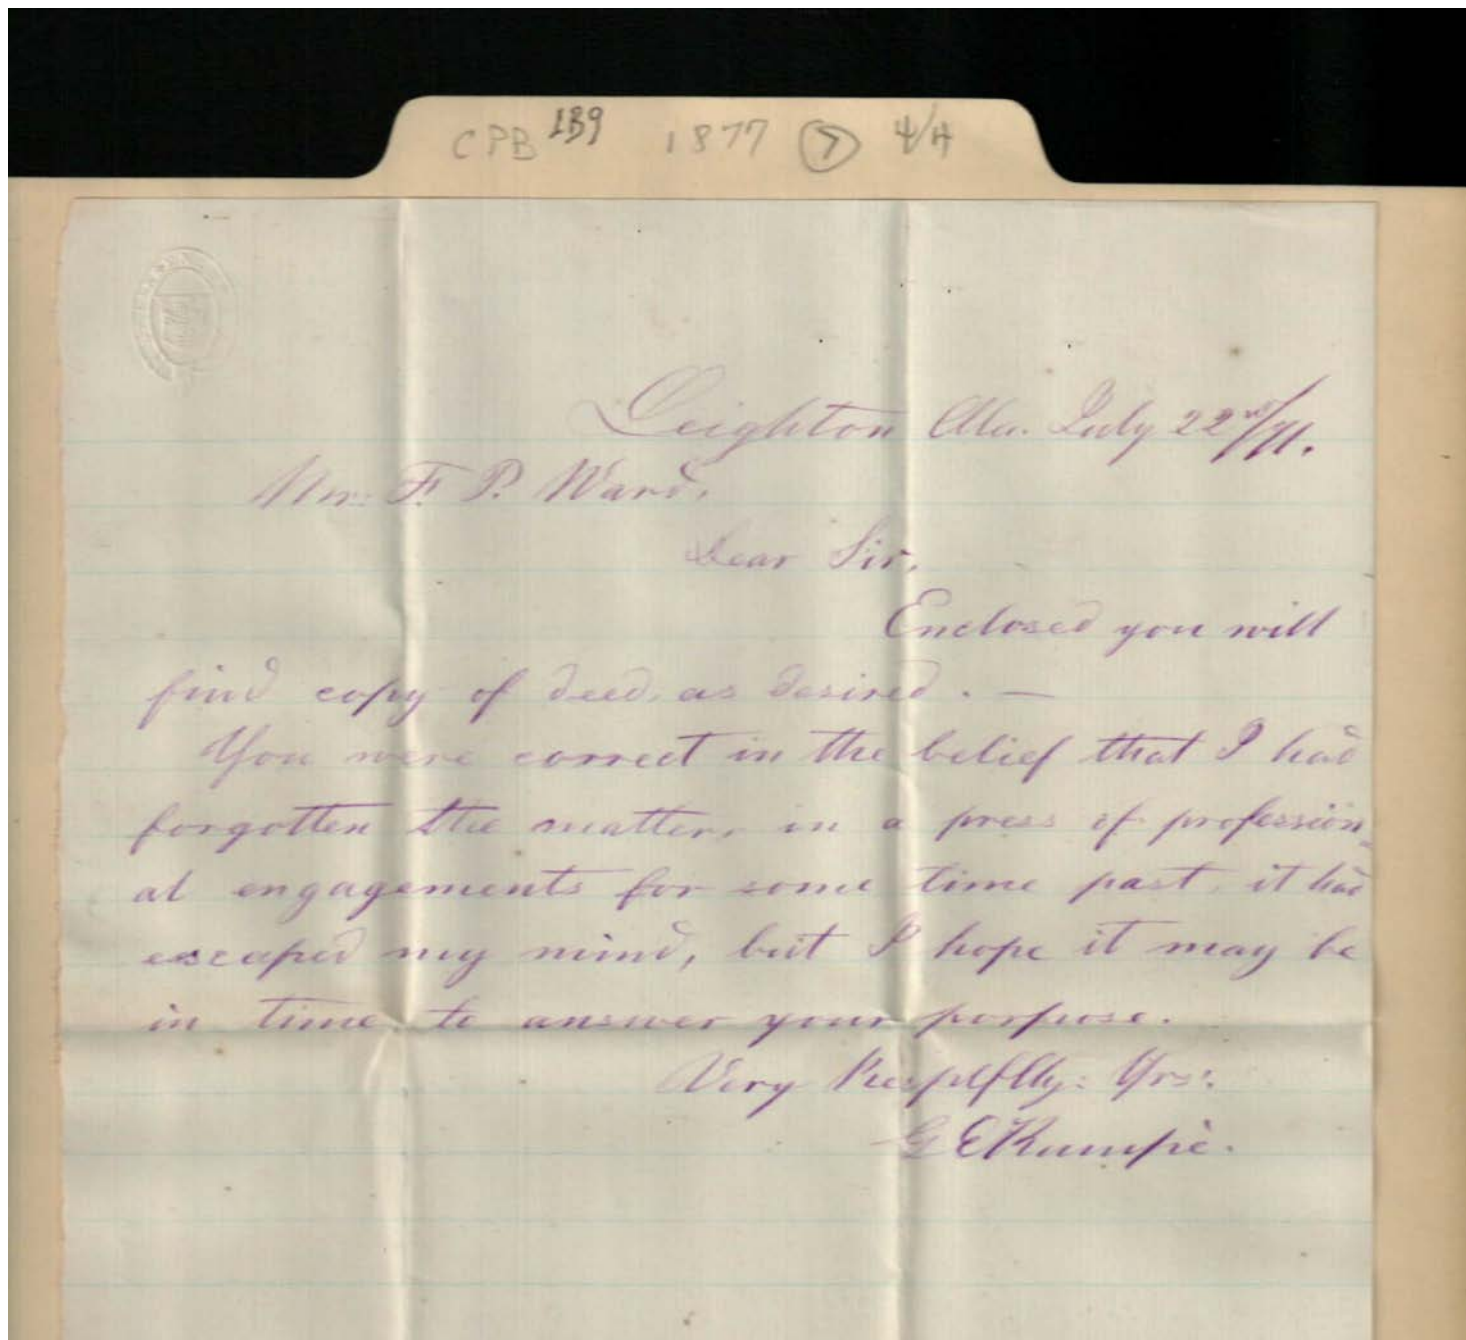 CPB 139 1877 7 4/4
Leighton Ala. July 22nd/71.
Mr. F. P. Ward,
Dear Sir,
Enclosed you will
find copy of deed, as desired. —
You were correct in the belief that I had
forgotten the matter, in a press of profession„
al engagements for some time past, it had
escaped my mind, but I hope it may be
in time to answer your porpose.
Very Respctflly: Yrs:
G E Kumpe.